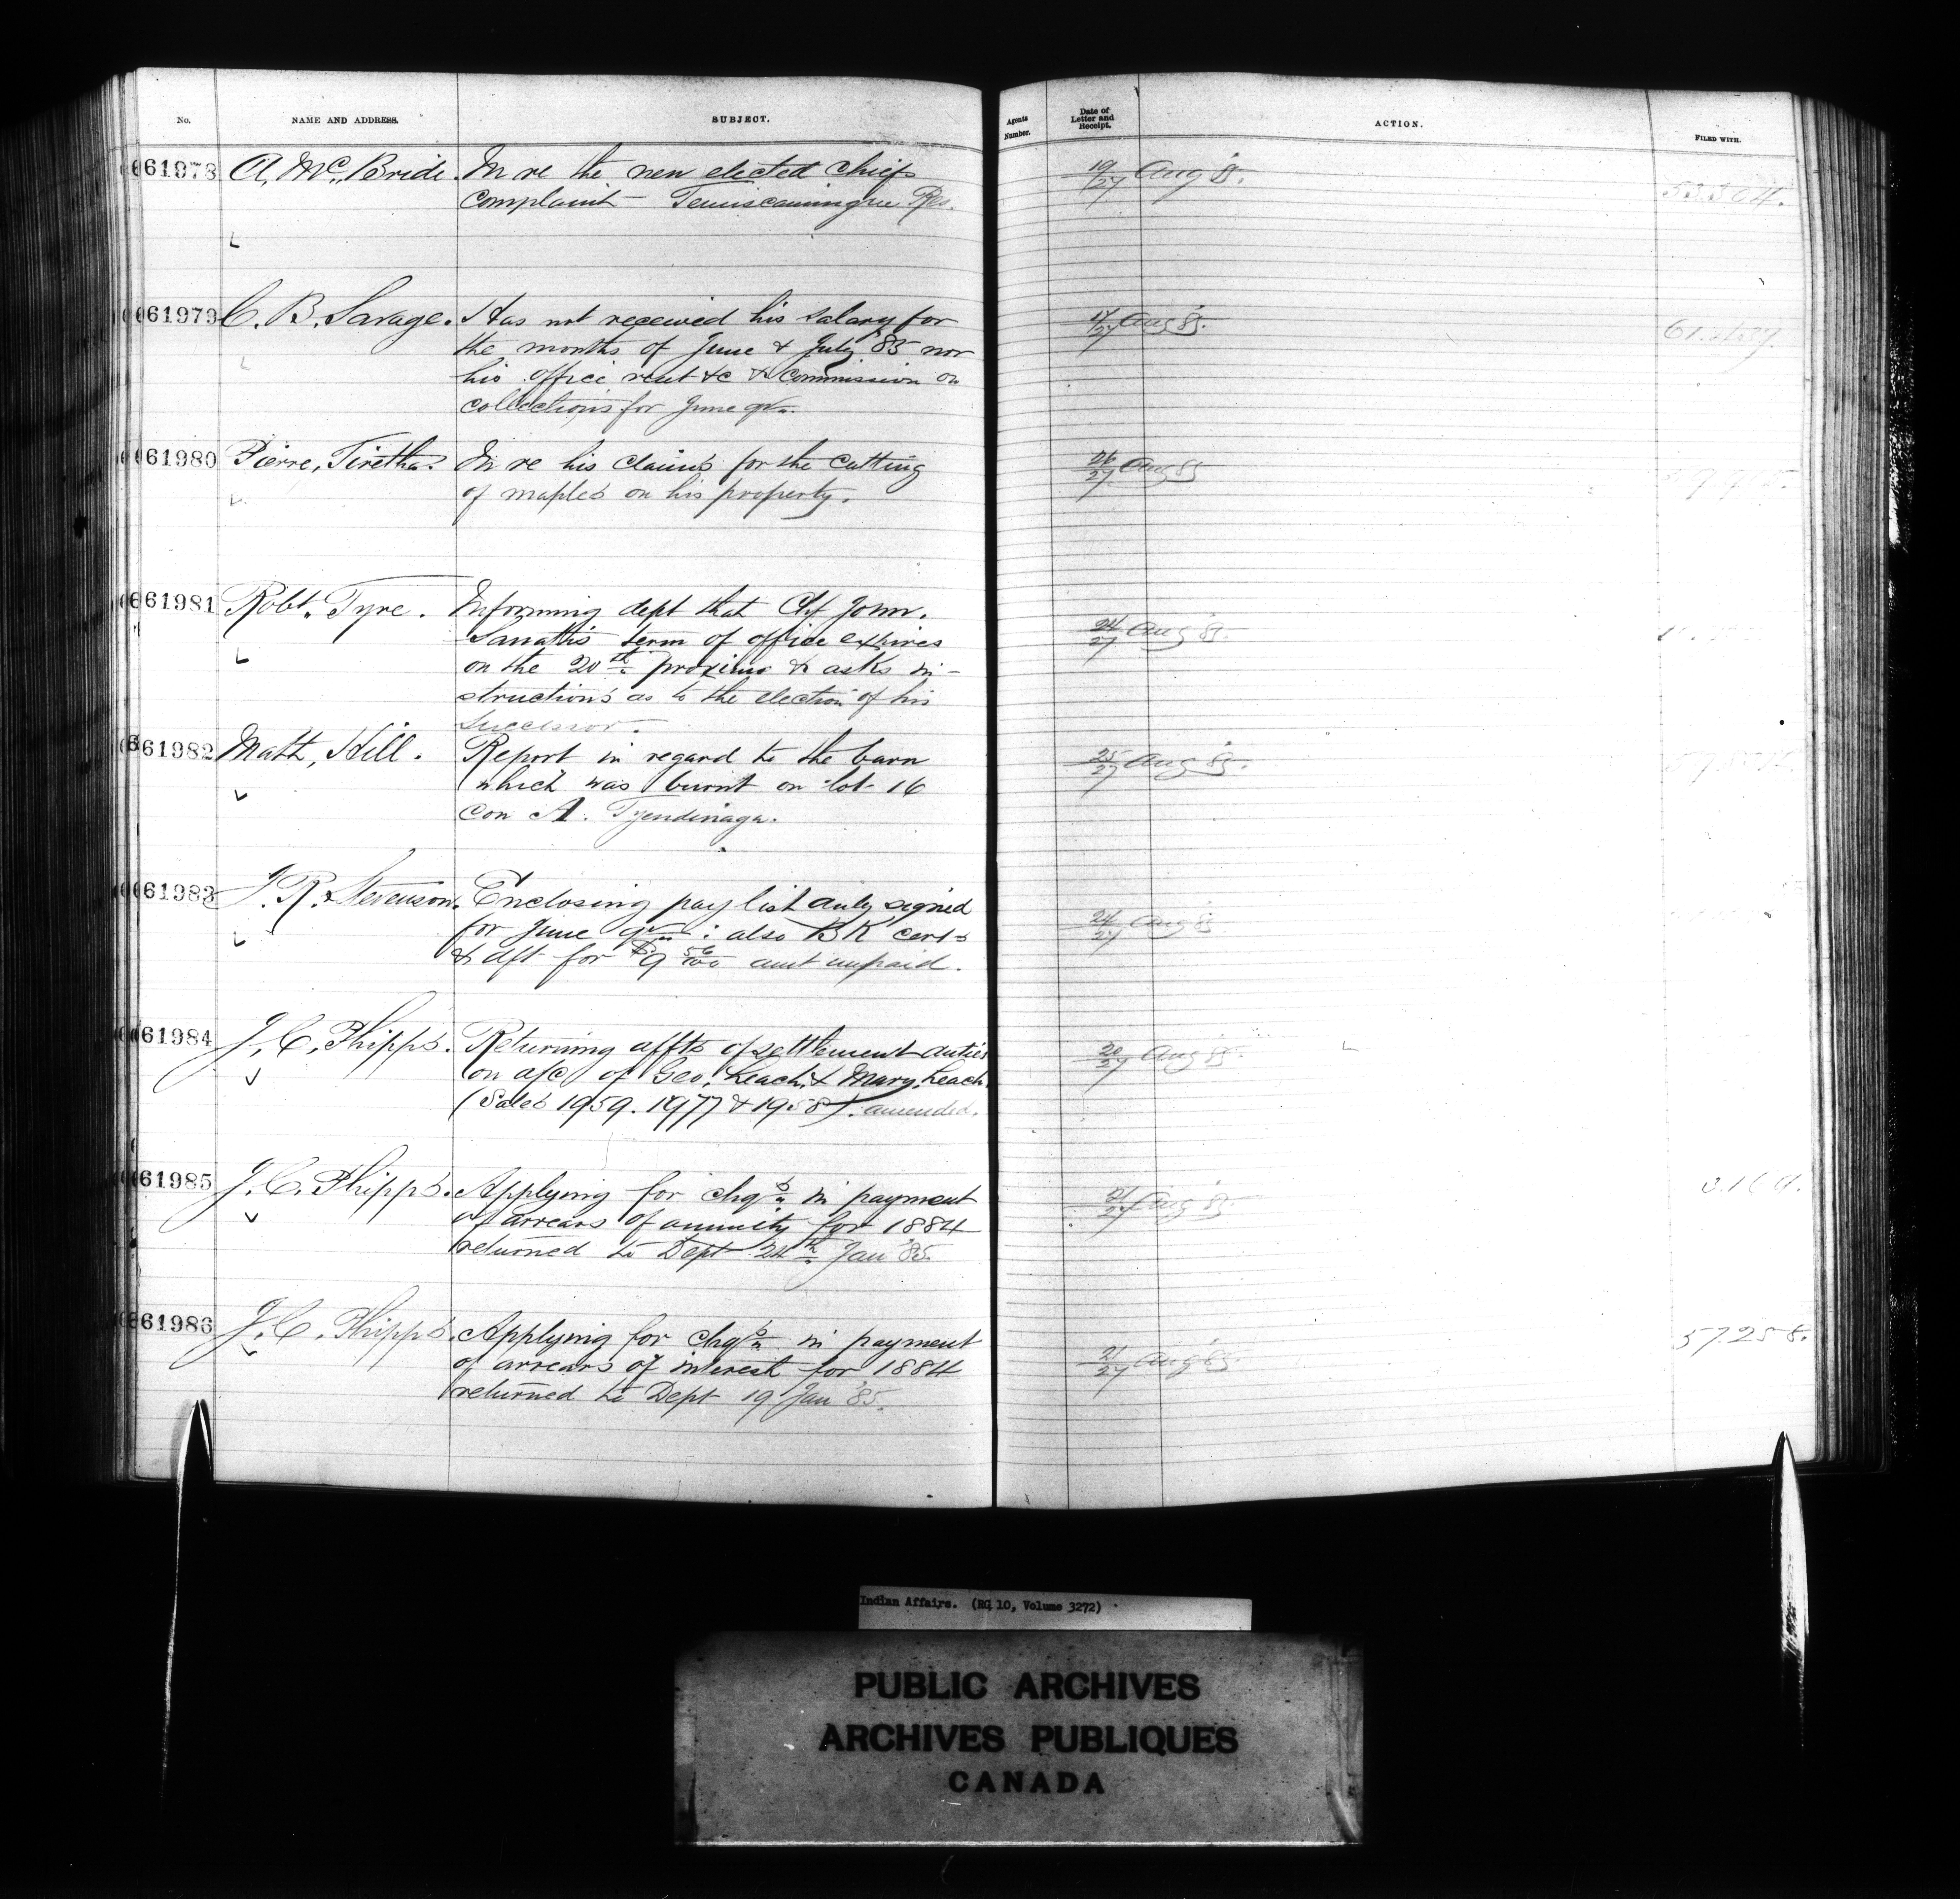 No. NAME AND ADDRESS. SUBJECT. Agents Number. Date of Letter and Receipt. ACTION. FILED WITH.
61978 A. McBride. In re the new elected Chiefs 19/27 Aug 8.
complaint - Temiscamingue Res. 53304.
61979 C. B. Savage. Has not received his salary for 17/27 Aug 85.
the months of June & July '85 nor
his office rent &c & Commission on
collections for June qr.
61980 Pierre, Tiretha. In re his claims for the cutting 26/27 Aug 85
of maples on his property.
61981 Robt. Tyre. Informing dept that Chf John.
term of office expires 24/27 Aug 85.
on the 20th proximo & asks in-
structions as to the election of his
Successor.
61982 Matt, Hill. Report in regard to the barn 25/27 Aug 85.
which was burnt on lot 16
Con A. Tyendinaga.
61983 J. R. Stevenson. Enclosing pay list duly signed
for June qr : also BK certs 24/27 Aug 85
& dft for $9 56/100 amt unpaid.
61984 J. C. Phipps. Returning affts of settlement duties 20/27 Aug 85.
on a/c of Geo. Leach & Mary Leach
(Sales 1959. 1977 & 1958). amended.
61985 J. C. Phipps. Applying for chqs in payment 21/27 Aug 85.
of arrears of annuity for 1884
returned to Dept 24th Jan '85.
61986 J. C. Phipps. Applying for chqs in payment 57258.
of arrears of interest for 1884 21/27 Aug 85.
returned to Dept 19 Jan '85.
Indian Affairs. (RG 10, Volume 3272)
PUBLIC ARCHIVES
ARCHIVES PUBLIQUES
CANADA